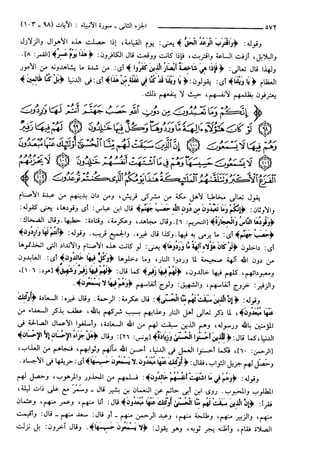 ٥٧٢ الجزء الثاني - سورة الأنبياء : الآيات (٩٨ - ١٠٣)
وقوله: ﴿وَاقْتَرَبَ الْوَعْدُ الْحَقُّ﴾ يعني: يوم القيامة، إذا حصلت هذه الأهوال والزلازل
والبلابل، أزفت الساعة واقتربت، فإذا كانت ووقعت قال الكافرون: ﴿هَذَا يَوْمٌ عَسِرٌ﴾ [القمر: ٨].
ولهذا قال تعالى: ﴿فَإِذَا هِيَ شَاخِصَةٌ أَبْصَارُ الَّذِينَ كَفَرُوا﴾ أي: من شدة ما يشاهدونه من الأمور
العظام ﴿يَا وَيْلَنَا﴾ أي: يقولون: ﴿يَا وَيْلَنَا قَدْ كُنَّا فِي غَفْلَةٍ مِّنْ هَذَا﴾ أي: في الدنيا
يعترفون بظلمهم لأنفسهم، حيث لا ينفعهم ذلك.
إِنَّكُمْ وَمَا تَعْبُدُونَ مِن دُونِ اللَّهِ حَصَبُ جَهَنَّمَ
يقول تعالى مخاطبا لأهل مكة من مشركي قريش، ومن دان بدينهم من عبدة الأصنام
والأوثان: ﴿إِنَّكُمْ وَمَا تَعْبُدُونَ مِن دُونِ اللَّهِ حَصَبُ جَهَنَّمَ﴾ قال ابن عباس: أي وقودها، يعني كقوله:
﴿وَقُودُهَا النَّاسُ وَالْحِجَارَةُ﴾ [التحريم: ٦]. وقال مجاهد، وعكرمة، وقتادة: حطبها. وقال الضحاك:
﴿حَصَبُ جَهَنَّمَ﴾ أي: ما يرمى به فيها. وكذا قال غيره. والجميع قريب. وقوله: ﴿أَنتُمْ لَهَا وَارِدُونَ﴾
أي: داخلون ﴿لَوْ كَانَ هَؤُلَاءِ آلِهَةً مَّا وَرَدُوهَا﴾ يعني: لو كانت هذه الأصنام والأنداد التي اتخذتموها
من دون الله آلهة صحيحة لما وردوا النار، وما دخلوها ﴿وَكُلٌّ فِيهَا خَالِدُونَ﴾ أي: العابدون
ومعبوداتهم، كلهم فيها خالدون، ﴿لَهُمْ فِيهَا زَفِيرٌ﴾ كما قال: ﴿لَهُمْ فِيهَا زَفِيرٌ وَشَهِيقٌ﴾ [هود: ١٠٦]،
والزفير: خروج أنفاسهم، والشهيق: ولوج أنفاسهم ﴿وَهُمْ فِيهَا لَا يَسْمَعُونَ﴾.
وقوله: ﴿إِنَّ الَّذِينَ سَبَقَتْ لَهُم مِّنَّا الْحُسْنَى﴾: قال عكرمة: الرحمة. وقال غيره: السعادة ﴿أُولَئِكَ
عَنْهَا مُبْعَدُونَ﴾، لما ذكر تعالى أهل النار وعذابهم بسبب شركهم بالله، عطف بذكر السعداء من
المؤمنين بالله ورسوله، وهم الذين سبقت لهم من الله السعادة، وأسلفوا الأعمال الصالحة في
الدنيا، كما قال: ﴿لِلَّذِينَ أَحْسَنُوا الْحُسْنَى وَزِيَادَةٌ﴾ [يونس: ٢٦]. وقال ﴿هَلْ جَزَاءُ الْإِحْسَانِ إِلَّا الْإِحْسَانُ﴾
[الرحمن: ٦٠]، فكما أحسنوا العمل في الدنيا، أحسن الله مآلهم وثوابهم، فنجاهم من العذاب،
وحصل لهم جزيل الثواب، فقال: ﴿أُولَئِكَ عَنْهَا مُبْعَدُونَ لَا يَسْمَعُونَ حَسِيسَهَا﴾ أي: حريقها في الأجساد.
وقوله: ﴿وَهُمْ فِي مَا اشْتَهَتْ أَنفُسُهُمْ خَالِدُونَ﴾: فسلمهم من المحذور والمرهوب، وحصل لهم
المطلوب والمحبوب. روى ابن أبي حاتم عن النعمان بن بشير قال - وسمر مع علي ذات ليلة،
فقرأ: ﴿إِنَّ الَّذِينَ سَبَقَتْ لَهُم مِّنَّا الْحُسْنَى أُولَئِكَ عَنْهَا مُبْعَدُونَ﴾ قال: أنا منهم، وعمر منهم، وعثمان
منهم، والزبير منهم، وطلحة منهم، وعبد الرحمن منهم - أو قال: سعد منهم - قال: وأقيمت
الصلاة فقام، وأظنه يجر ثوبه، وهو يقول: ﴿لَا يَسْمَعُونَ حَسِيسَهَا﴾. وقال آخرون: بل نزلت